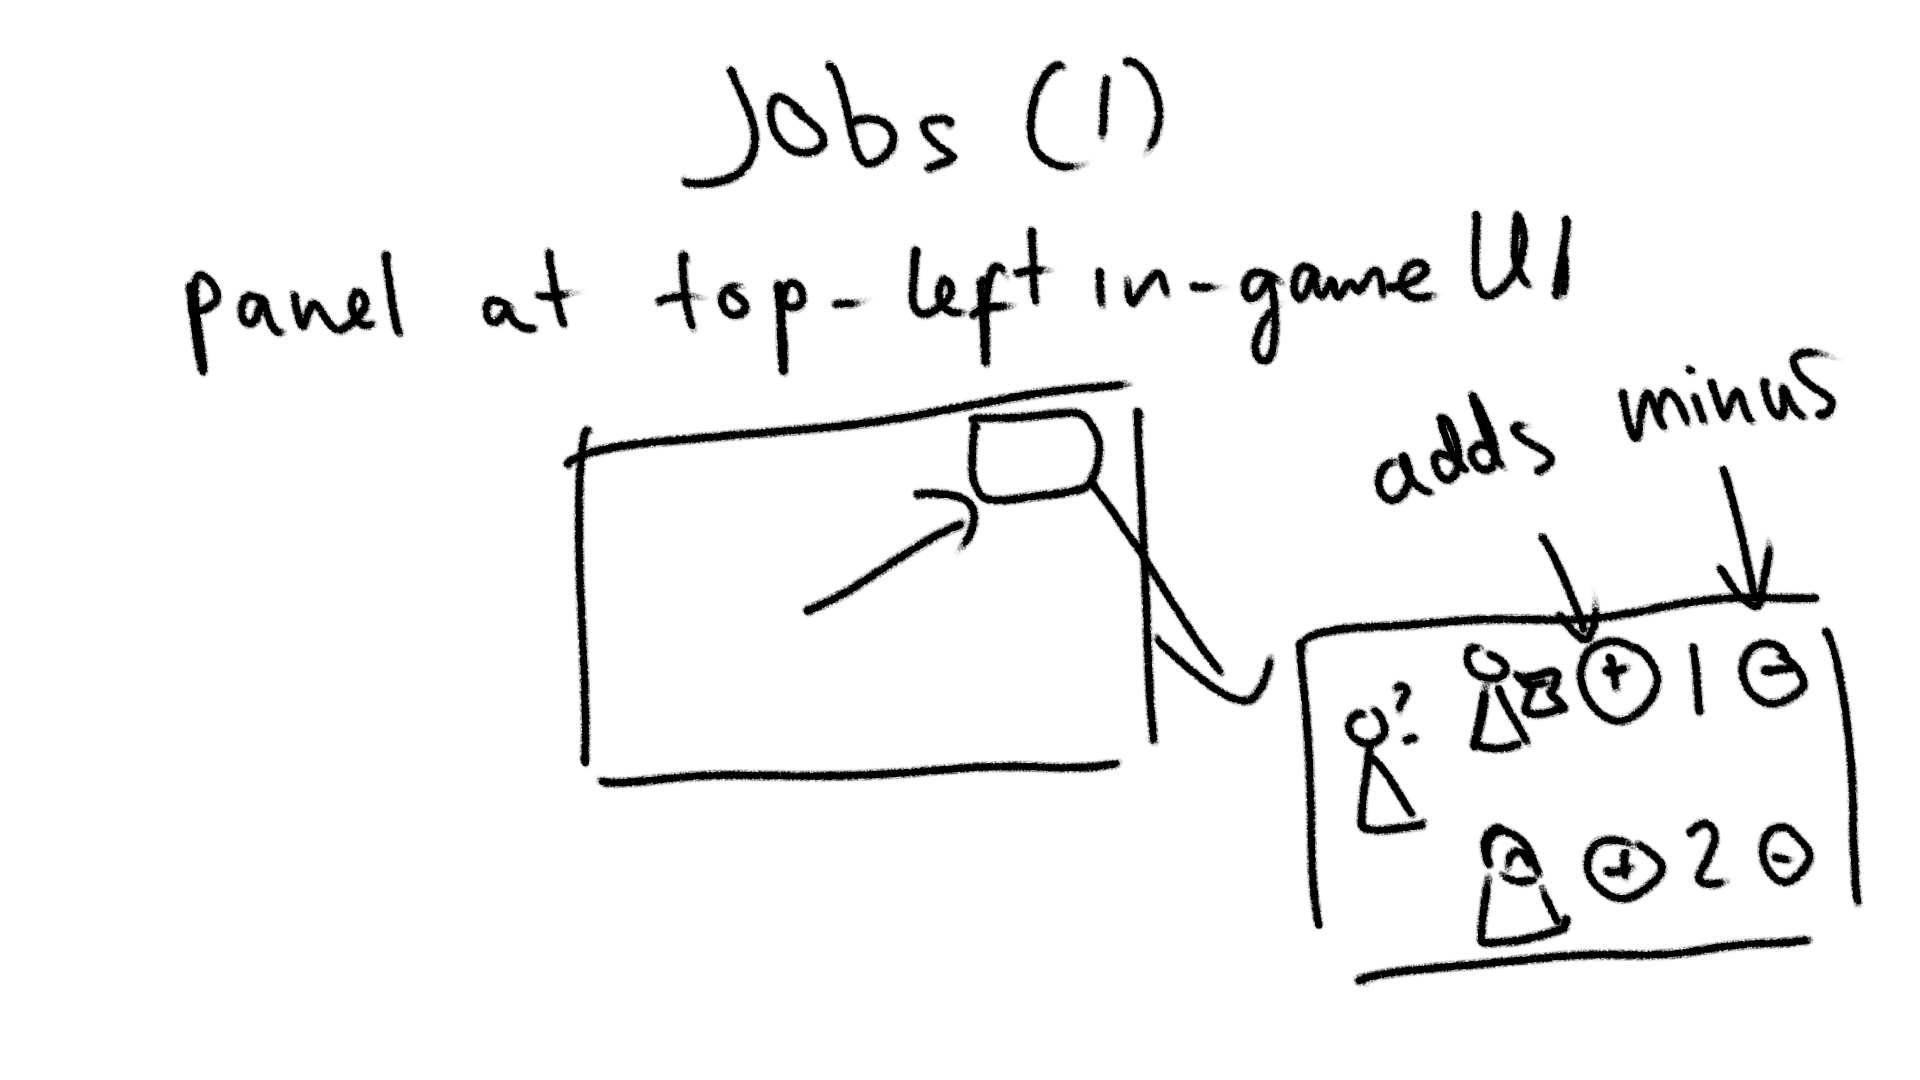 Jobs (1)
panel at top-left in-game UI
adds minus
? + 1 -
+ 2 -